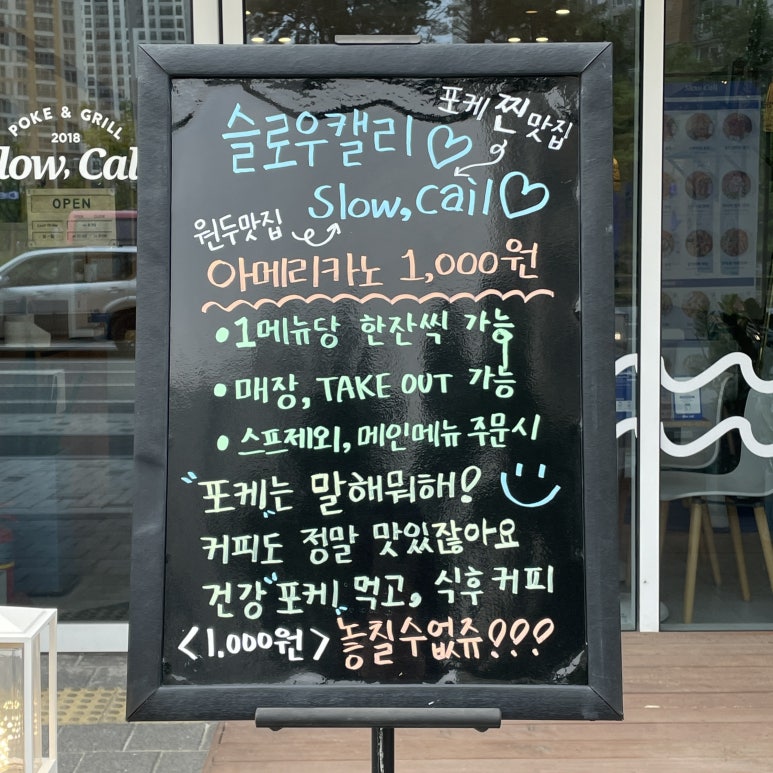 POKE & GRILL
2018
low, Cal
OPEN
포케 찐맛집
슬로우캘리
slow, cail
원두맛집
아메리카노 1,000원
• 1메뉴당 한잔씩 가능
• 매장, TAKE OUT 가능
• 스프제외, 메인메뉴 주문시
"포케"는 말해뭐해!
커피도 정말 맛있잖아요
건강 "포케" 먹고, 식후커피
<1,000원> 놓칠수없쥬???
Slow, Cali